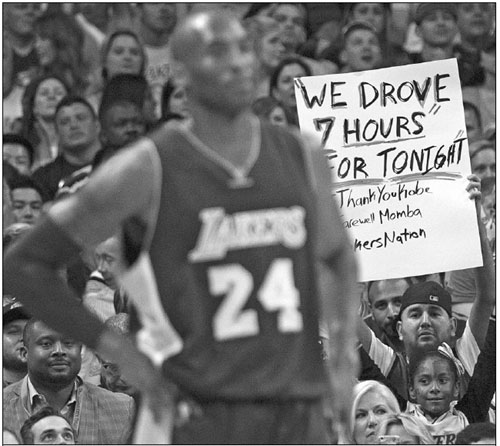 WE DROVE
7 HOURS"
FOR TONIGHT"
ThankYouKobe
Farewell Momba
kersNation
LAKERS
24